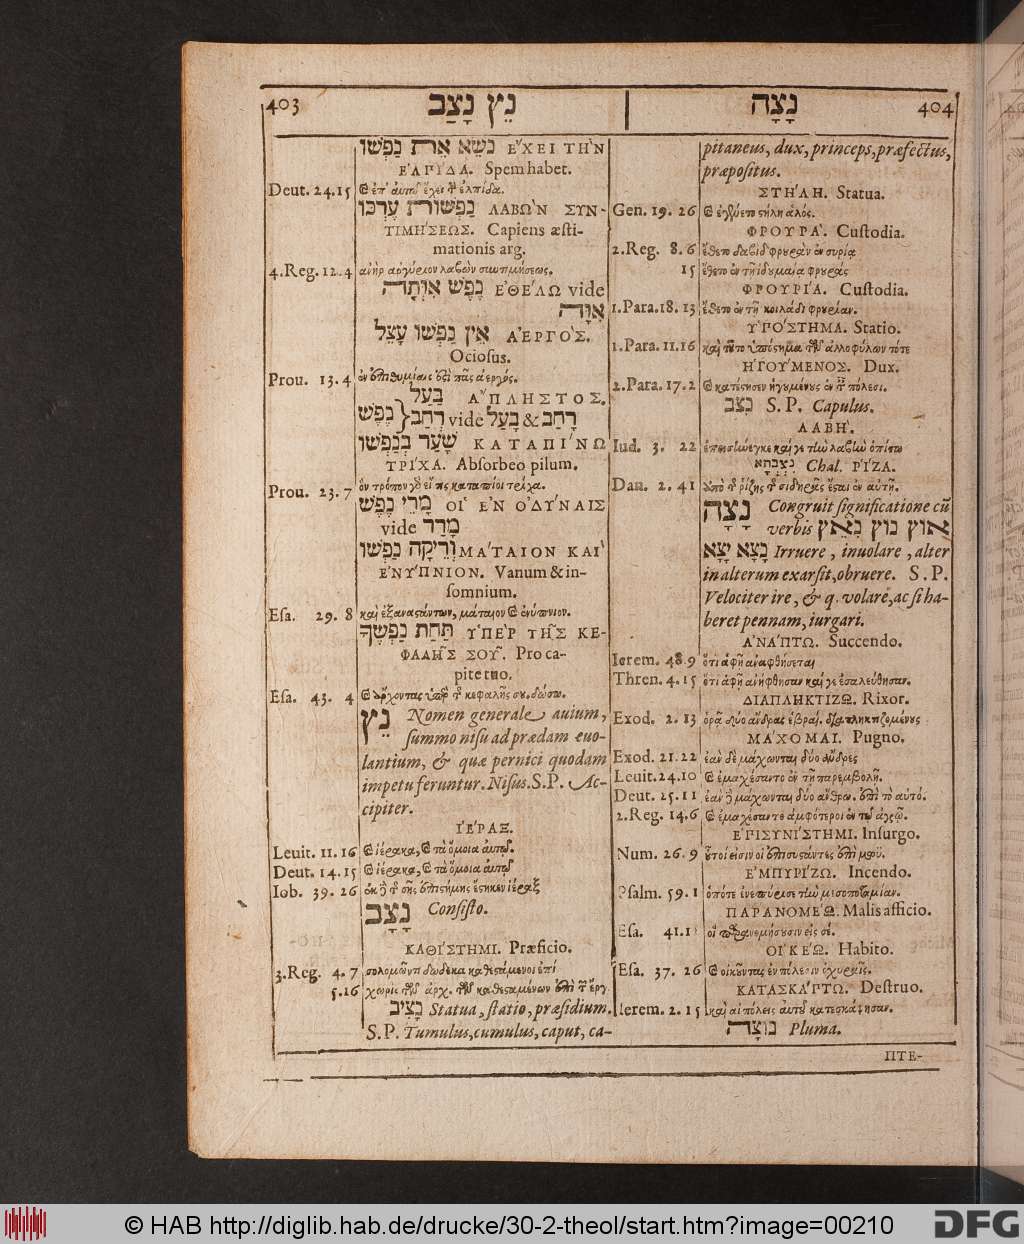 403 נֵץ נָצַב
נֹשֵׂא אֶת נַפְשׁוֹ ἜΧΕΙ ΤῊΝ
ἘΛΠΊΔΑ. Spem habet.
Deut. 24.15 ἐπ' αὐτῷ ἔχει τὴν ἐλπίδα.
נַפְשׁוֹת עֶרְכּוֹ ΛΑΒῺΝ ΣΥΝ-
ΤΙΜΉΣΕΩΣ. Capiens æsti-
mationis arg.
4.Reg. 12.4 ἀνὴρ ἀργύριον λαβὼν συντιμήσεως.
נֶפֶשׁ אִוְּתָה ἘΘΕΛΩ vide
אִוָּה
אֵין נַפְשׁוֹ עָצֵל ἈΕΡΓῸΣ.
Ociosus.
Prou. 13.4 ἐν ἐπιθυμίαις ἐστὶ πᾶς ἀεργός.
בַּעַל ἌΠΛΗΣΤΟΣ.
נֶפֶשׁ רְחַב vide בָּעַל & רָחַב
שָׁעַר בְּנַפְשׁוֹ ΚΑΤΑΠΊΝΩ
ΤΡΊΧΑ. Absorbeo pilum.
Prou. 23.7 ὃν τρόπον γὰρ εἴ τις καταπίοι τρίχα.
מָרֵי נֶפֶשׁ ΟἹ ἘΝ ὈΔΎΝΑΙΣ
vide מָרַר
וְרֵיקָה נַפְשׁוֹ ΜΆΤΑΙΟΝ ΚΑῚ
ἘΝΎΠΝΙΟΝ. Vanum & in-
somnium.
Esa. 29. 8 καὶ ἐξαναστάντων, μάταιον ἐνύπνιον.
תַּחַת נַפְשֶׁךָ ὙΠῈΡ ΤΗ͂Σ ΚΕ-
ΦΑΛΗ͂Σ ΣΟΥ͂. Pro ca-
pite tuo.
Esa. 43. 4 ἄρχοντας ὑπὲρ τῆς κεφαλῆς σου. δώσω.
נֵץ Nomen generale auium,
summo nisu ad prædam euo-
lantium, & quæ pernici quodam
impetu feruntur. Nisus. S.P. Ac-
cipiter.
ἹΈΡΑΞ.
Leuit. 11.16 ἱέρακα, τὰ ὅμοια αὐτῷ.
Deut. 14.15 ἱέρακα, τὰ ὅμοια αὐτῷ.
Iob. 39. 26 ἐκ δὲ τῆς σῆς ἐπιστήμης ἕστηκεν ἱέραξ
נָצַב Consisto.
ΚΑΘΊΣΤΗΜΙ. Præficio.
3.Reg. 4.7 σολομῶντι δώδεκα καθεσταμένοι ἐπὶ
5.16 χωρὶς τῶν ἀρχ. τῶν καθεσταμένων ἐπὶ τῶν ἔργ.
נְצִיב Statua, statio, præsidium.
S.P. Tumulus, cumulus, caput, ca-
נָצָה 404
pitaneus, dux, princeps, præfectus,
præpositus.
ΣΤΉΛΗ. Statua.
Gen. 19. 26 ἐγένετο στήλη ἁλός.
ΦΡΟΥΡΆ. Custodia.
2.Reg. 8.6 ἔθετο δαβὶδ φρουρὰν ἐν συρίᾳ
15 ἔθετο ἐν τῇ ἰδουμαίᾳ φρουράς
ΦΡΟΥΡΊΑ. Custodia.
1.Para. 18. 13 ἔθετο ἐν τῇ κοιλάδι φρουρίαν.
ὙΠΌΣΤΗΜΑ. Statio.
1.Para. 11.16 καὶ τοῦτο ὑπόστημα τῶν ἀλλοφύλων τότε
ἩΓΟΎΜΕΝΟΣ. Dux.
2.Para. 17.2 κατέστησεν ἡγουμένους ἐν πόλεσι.
נִצָּב S.P. Capulus.
ΛΑΒΉ.
Iud. 3. 22 ἐπεισήνεγκε καί γε τὴν λαβὴν ὀπίσω
נִצְבְּתָא Chal. ῬΊΖΑ.
Dan. 2. 41 ἀπὸ τῆς ῥίζης τῆς σιδηρᾶς ἔσται ἐν αὐτῇ.
נָצָה Congruit significatione cū
verbis אוּץ נוּץ נָאַץ
נָצָא יָצָא Irruere, inuolare, alter
in alterum exarsit, obruere. S.P.
Velociter ire, & q. volare, ac si ha-
beret pennam, iurgari.
ἈΝΆΠΤΩ. Succendo.
Ierem. 48.9 ὅτι ἁφῇ ἀναφθήσεται
Thren. 4.15 ὅτι ἁφῇ ἀνήφθησαν καί γε ἐσαλεύθησαν.
ΔΙΑΠΛΗΚΤΊΖΩ. Rixor.
Exod. 2. 13 ὁρᾷ δύο ἄνδρας ἑβραί. διαπληκτιζομένους
ΜΆΧΟΜΑΙ. Pugno.
Exod. 21.22 ἐὰν δὲ μάχωνται δύο ἄνδρες
Leuit. 24.10 ἐμαχέσαντο ἐν τῇ παρεμβολῇ.
Deut. 25.11 ἐὰν δὲ μάχωνται δύο ἄνθρω. ἐπὶ τὸ αὐτό.
2.Reg. 14.6 ἐμαχέσαντο ἀμφότεροι ἐν τῷ ἀγρῷ.
ἘΠΙΣΥΝΊΣΤΗΜΙ. Insurgo.
Num. 26. 9 οὗτοί εἰσιν οἱ ἐπισυστάντες ἐπὶ μωϋ.
ἘΜΠΥΡΊΖΩ. Incendo.
Psalm. 59.1 ὁπότε ἐνεπύρισε τὴν μεσοποταμίαν.
ΠΑΡΑΝΟΜΈΩ. Malis afficio.
Esa. 41.1 οἳ παρανομήσουσιν εἰς σέ.
ΟἸΚΈΩ. Habito.
Esa. 37. 26 οἰκοῦντας ἐν πόλεσιν ὀχυραῖς.
ΚΑΤΑΣΚΆΠΤΩ. Destruo.
Ierem. 2. 15 καὶ αἱ πόλεις αὐτοῦ κατεσκάφησαν.
נוֹצָה Pluma.
ΠΤΕ-
© HAB http://diglib.hab.de/drucke/30-2-theol/start.htm?image=00210
DFG